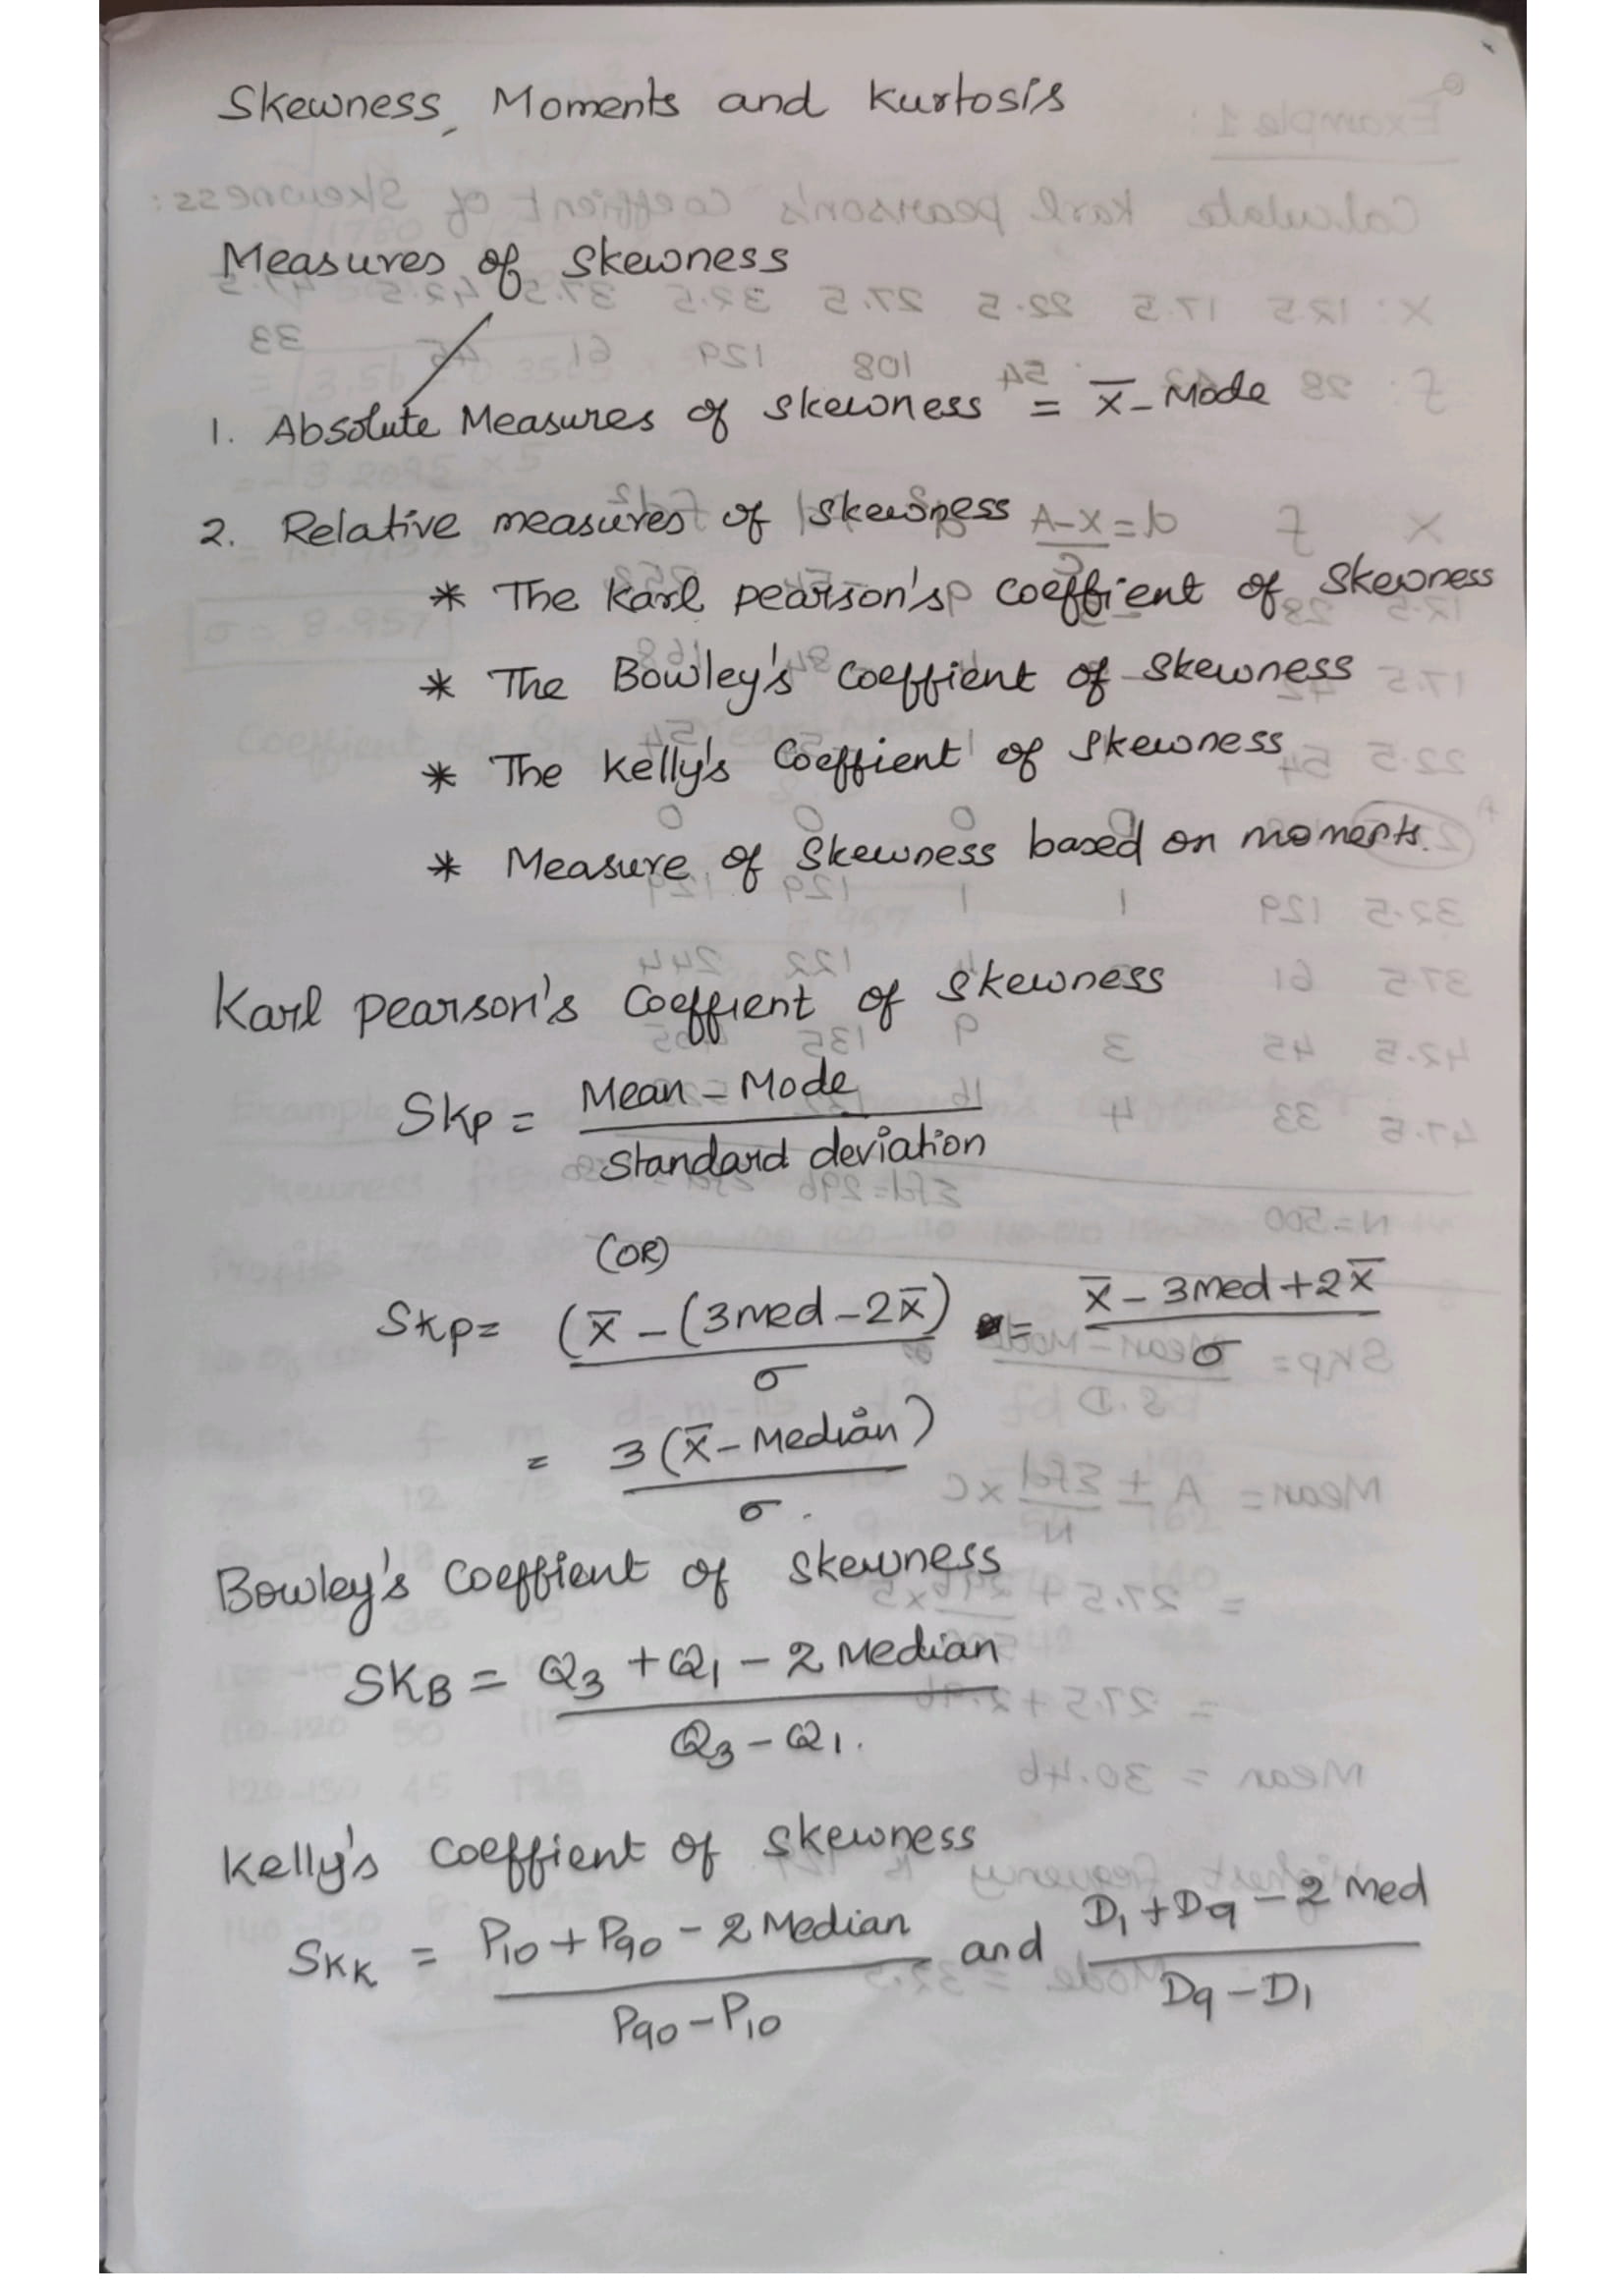 Skewness, Moments and Kurtosis
Measures of Skewness
1. Absolute Measures of Skewness = x̄ - Mode
2. Relative measures of Skewness
* The Karl pearson's Coeffient of Skewness
* The Bowley's Coeffient of Skewness
* The Kelly's Coeffient of Skewness
* Measure of Skewness based on moments.
Karl pearson's Coeffient of Skewness
Skp = Mean - Mode / Standard deviation
(OR)
Skp = (x̄ - (3med - 2x̄) / σ = x̄ - 3med + 2x̄ / σ
= 3(x̄ - Median) / σ.
Bowley's Coeffient of Skewness
SKB = Q3 + Q1 - 2 Median / Q3 - Q1.
Kelly's Coeffient of Skewness
SKK = P10 + P90 - 2 Median / P90 - P10 and D1 + D9 - 2 Med / D9 - D1